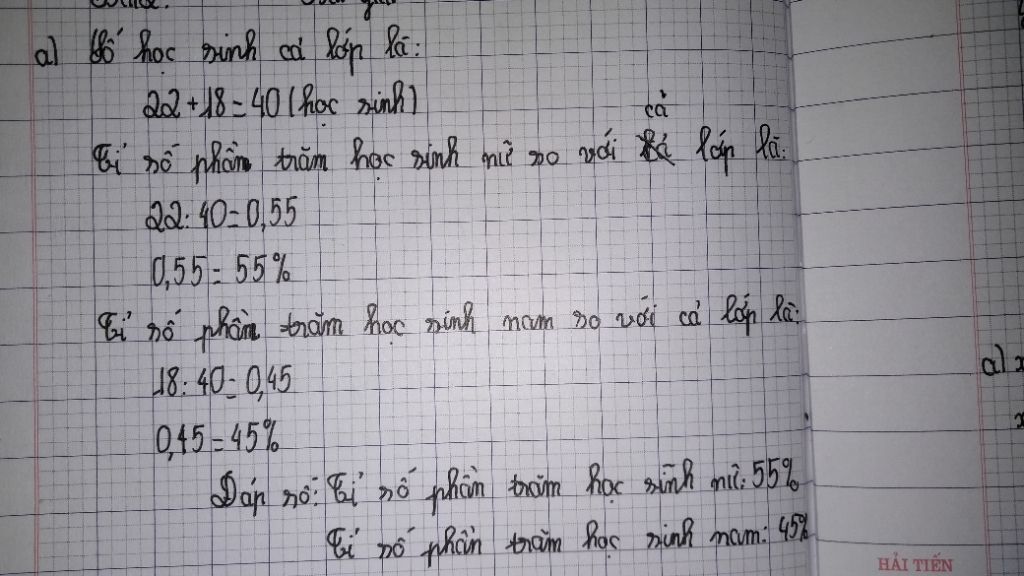 a) Số học sinh cả lớp là:
22 + 18 = 40 (học sinh)
cả
Tỉ số phần trăm học sinh nữ so với lớp là:
22 : 40 = 0,55
0,55 = 55%
Tỉ số phần trăm học sinh nam so với cả lớp là:
18 : 40 = 0,45
0,45 = 45%
Đáp số: Tỉ số phần trăm học sinh nữ: 55%
Tỉ số phần trăm học sinh nam: 45%
a) x
x
HẢI TIẾN